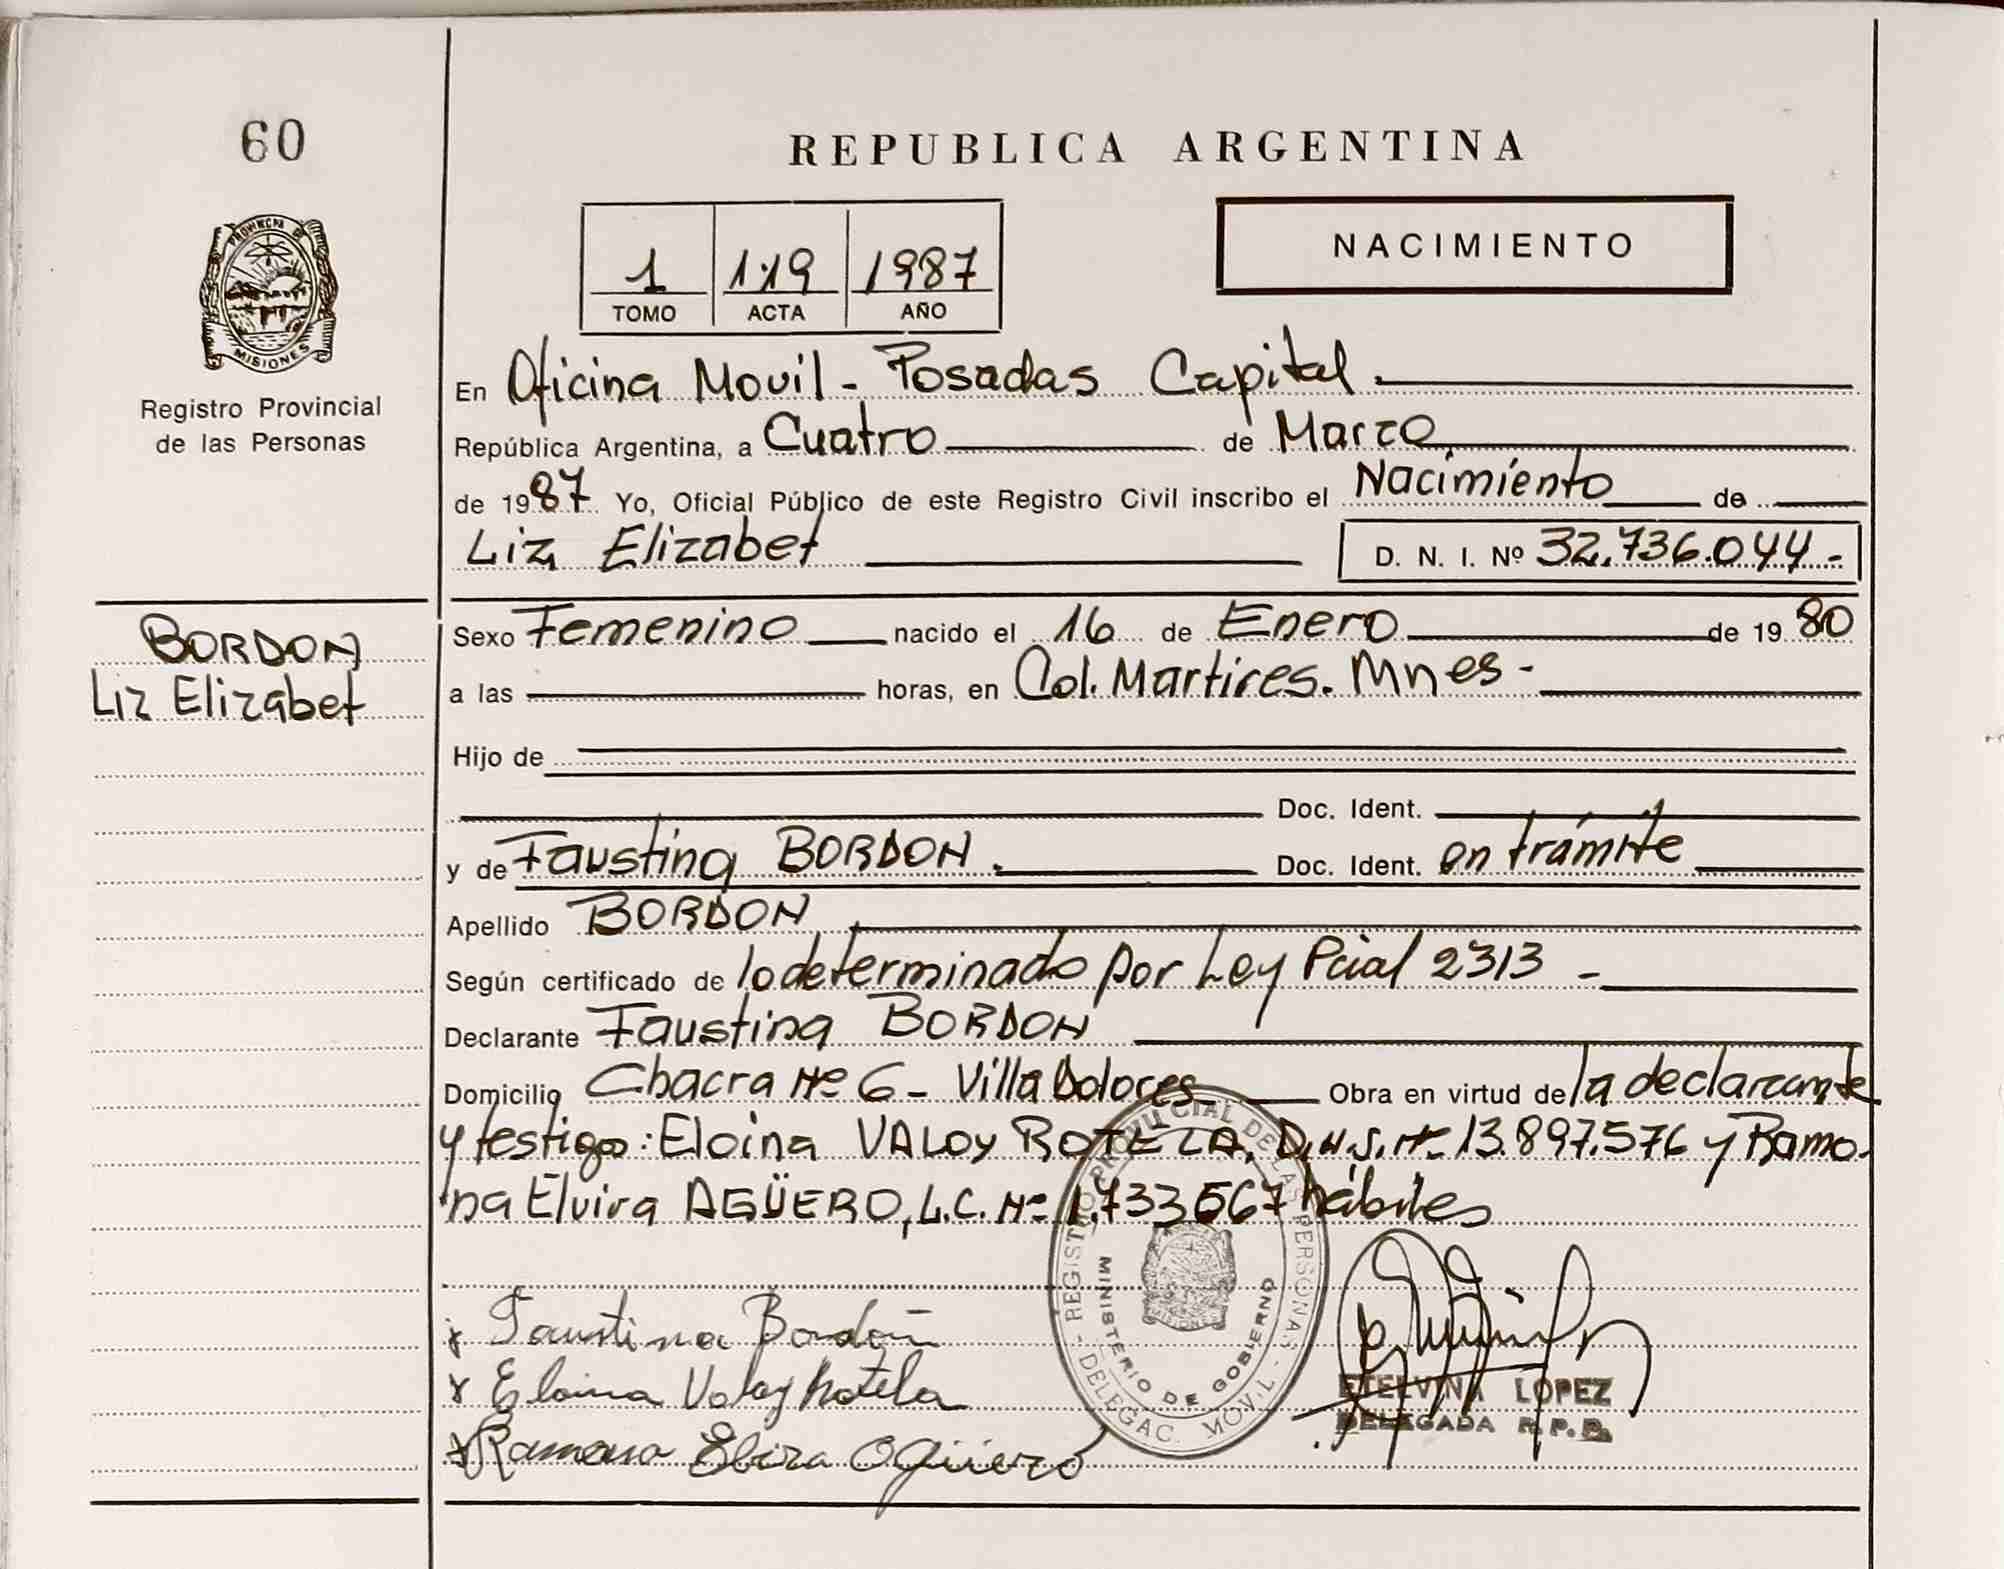 60
REPUBLICA ARGENTINA
NACIMIENTO
1 119 1987
TOMO ACTA AÑO
PROVINCIA DE MISIONES
Registro Provincial
de las Personas
En Oficina Movil - Posadas Capital.
República Argentina, a Cuatro de Marzo
de 1987 Yo, Oficial Público de este Registro Civil inscribo el Nacimiento de
Liz Elizabet D. N. I. Nº 32.736.044.-
BORDON
Liz Elizabet
Sexo Femenino nacido el 16 de Enero de 1980
a las horas, en Col. Martires. Mnes -
Hijo de
Doc. Ident.
y de Faustina BORDON. Doc. Ident. en trámite
Apellido BORDON
Según certificado de lo determinado por Ley Pcial 2313 -
Declarante Faustina BORDON
Domicilio Chacra Nº 6 - Villa Dolores Obra en virtud de la declarante
y testigos: Eloina VALOY ROTELA, D.N.I. Nº 13.897.576 y Ramo-
na Elvira AGÜERO, L.C. Nº 1.733567 hábiles
REGISTRO PROVINCIAL DE LAS PERSONAS - DELEGAC. MOVIL -
MINISTERIO DE GOBIERNO
MISIONES
x Faustina Bordón
x Eloina Valoy Rotela
x Ramona Elvira Agüero
ETELVINA LOPEZ
DELEGADA R.P.P.